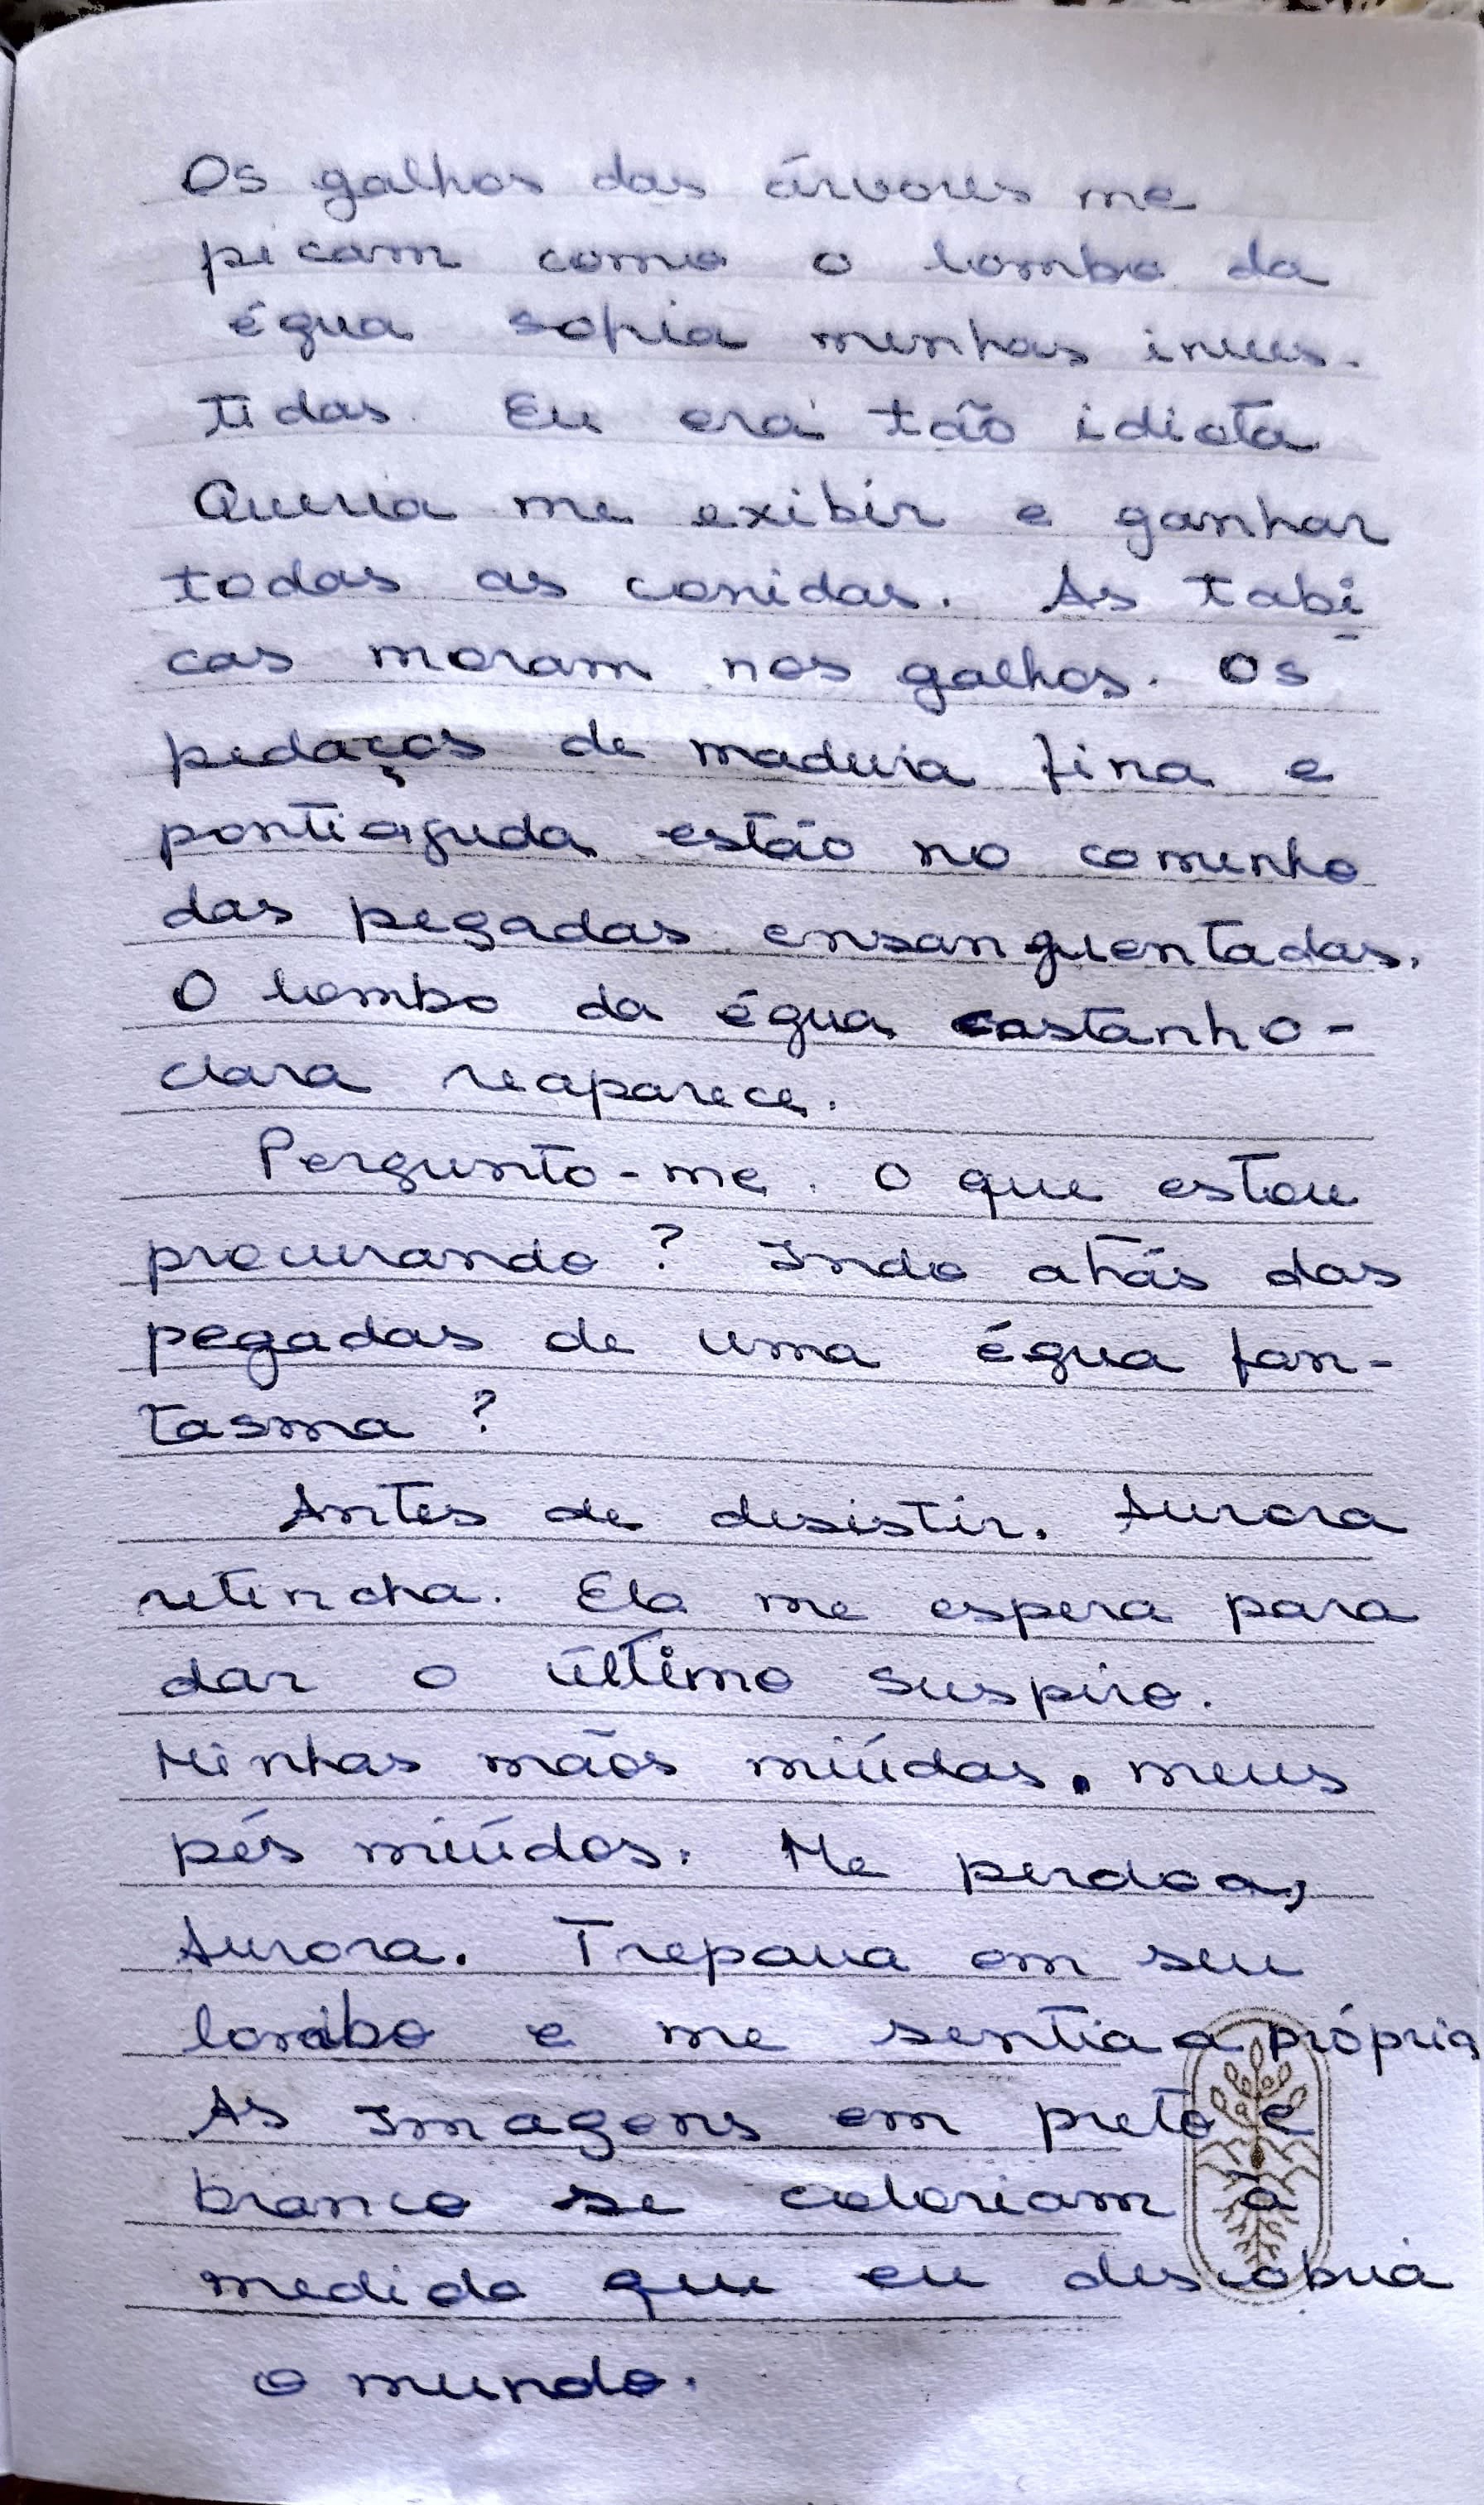 Os galhos das árvores me
picam como o lombo da
égua sofria minhas inves-
tidas. Eu era tão idiota
Queria me exibir e ganhar
todas as corridas. As tabi
cas moram nos galhos. Os
pedaços de madeira fina e
pontiaguda estão no caminho
das pegadas ensanguentadas.
O lombo da égua castanho-
clara reaparece.
Pergunto-me. O que estou
procurando? Indo atrás das
pegadas de uma égua fan-
tasma?
Antes de desistir. Aurora
retincha. Ela me espera para
dar o último suspiro.
Minhas mãos miúdas, meus
pés miúdos. Me perdoa,
Aurora. Trepava em seu
lombo e me sentia a própria
As Imagens em preto e
branco se coloriam à
medida que eu descobria
o mundo.